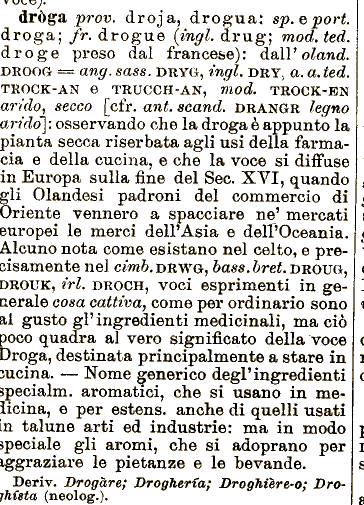 voce).
dròga prov. droja, drogua: sp. e port.
droga; fr. drogue (ingl. drug; mod. ted.
droge preso dal francese): dall' oland.
DROOG = ang. sass. DRYG, ingl. DRY, a. a. ted.
TROCK-AN e TRUCCH-AN, mod. TROCK-EN
arido, secco [cfr. ant. scand. DRANGR legno
arido]: osservando che la droga è appunto la
pianta secca riserbata agli usi della farma-
cia e della cucina, e che la voce si diffuse
in Europa sulla fine del Sec. XVI, quando
gli Olandesi padroni del commercio di
Oriente vennero a spacciare ne' mercati
europei le merci dell'Asia e dell'Oceania.
Alcuno nota come esistano nel celto, e pre-
cisamente nel cimb. DRWG, bass. bret. DROUG,
DROUK, irl. DROCH, voci esprimenti in ge-
nerale cosa cattiva, come per ordinario sono
al gusto gl'ingredienti medicinali, ma ciò
poco quadra al vero significato della voce
Droga, destinata principalmente a stare in
cucina. — Nome generico degl'ingredienti
specialm. aromatici, che si usano in me-
dicina, e per estens. anche di quelli usati
in talune arti ed industrie: ma in modo
speciale gli aromi, che si adoprano per
aggraziare le pietanze e le bevande.
Deriv. Drogàre; Drogheria; Droghière-o; Dro-
ghista (neolog.).